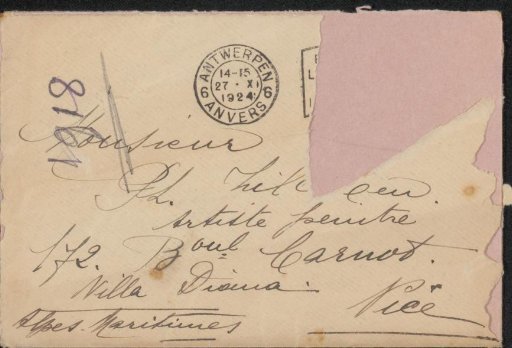 ANTWERPEN
14-15
27 · XI
1924
6 6
ANVERS
1918
Monsieur
Ph.
Artiste peintre
172. Boul Carnot.
Villa Diana.
Nice
Alpes Maritimes